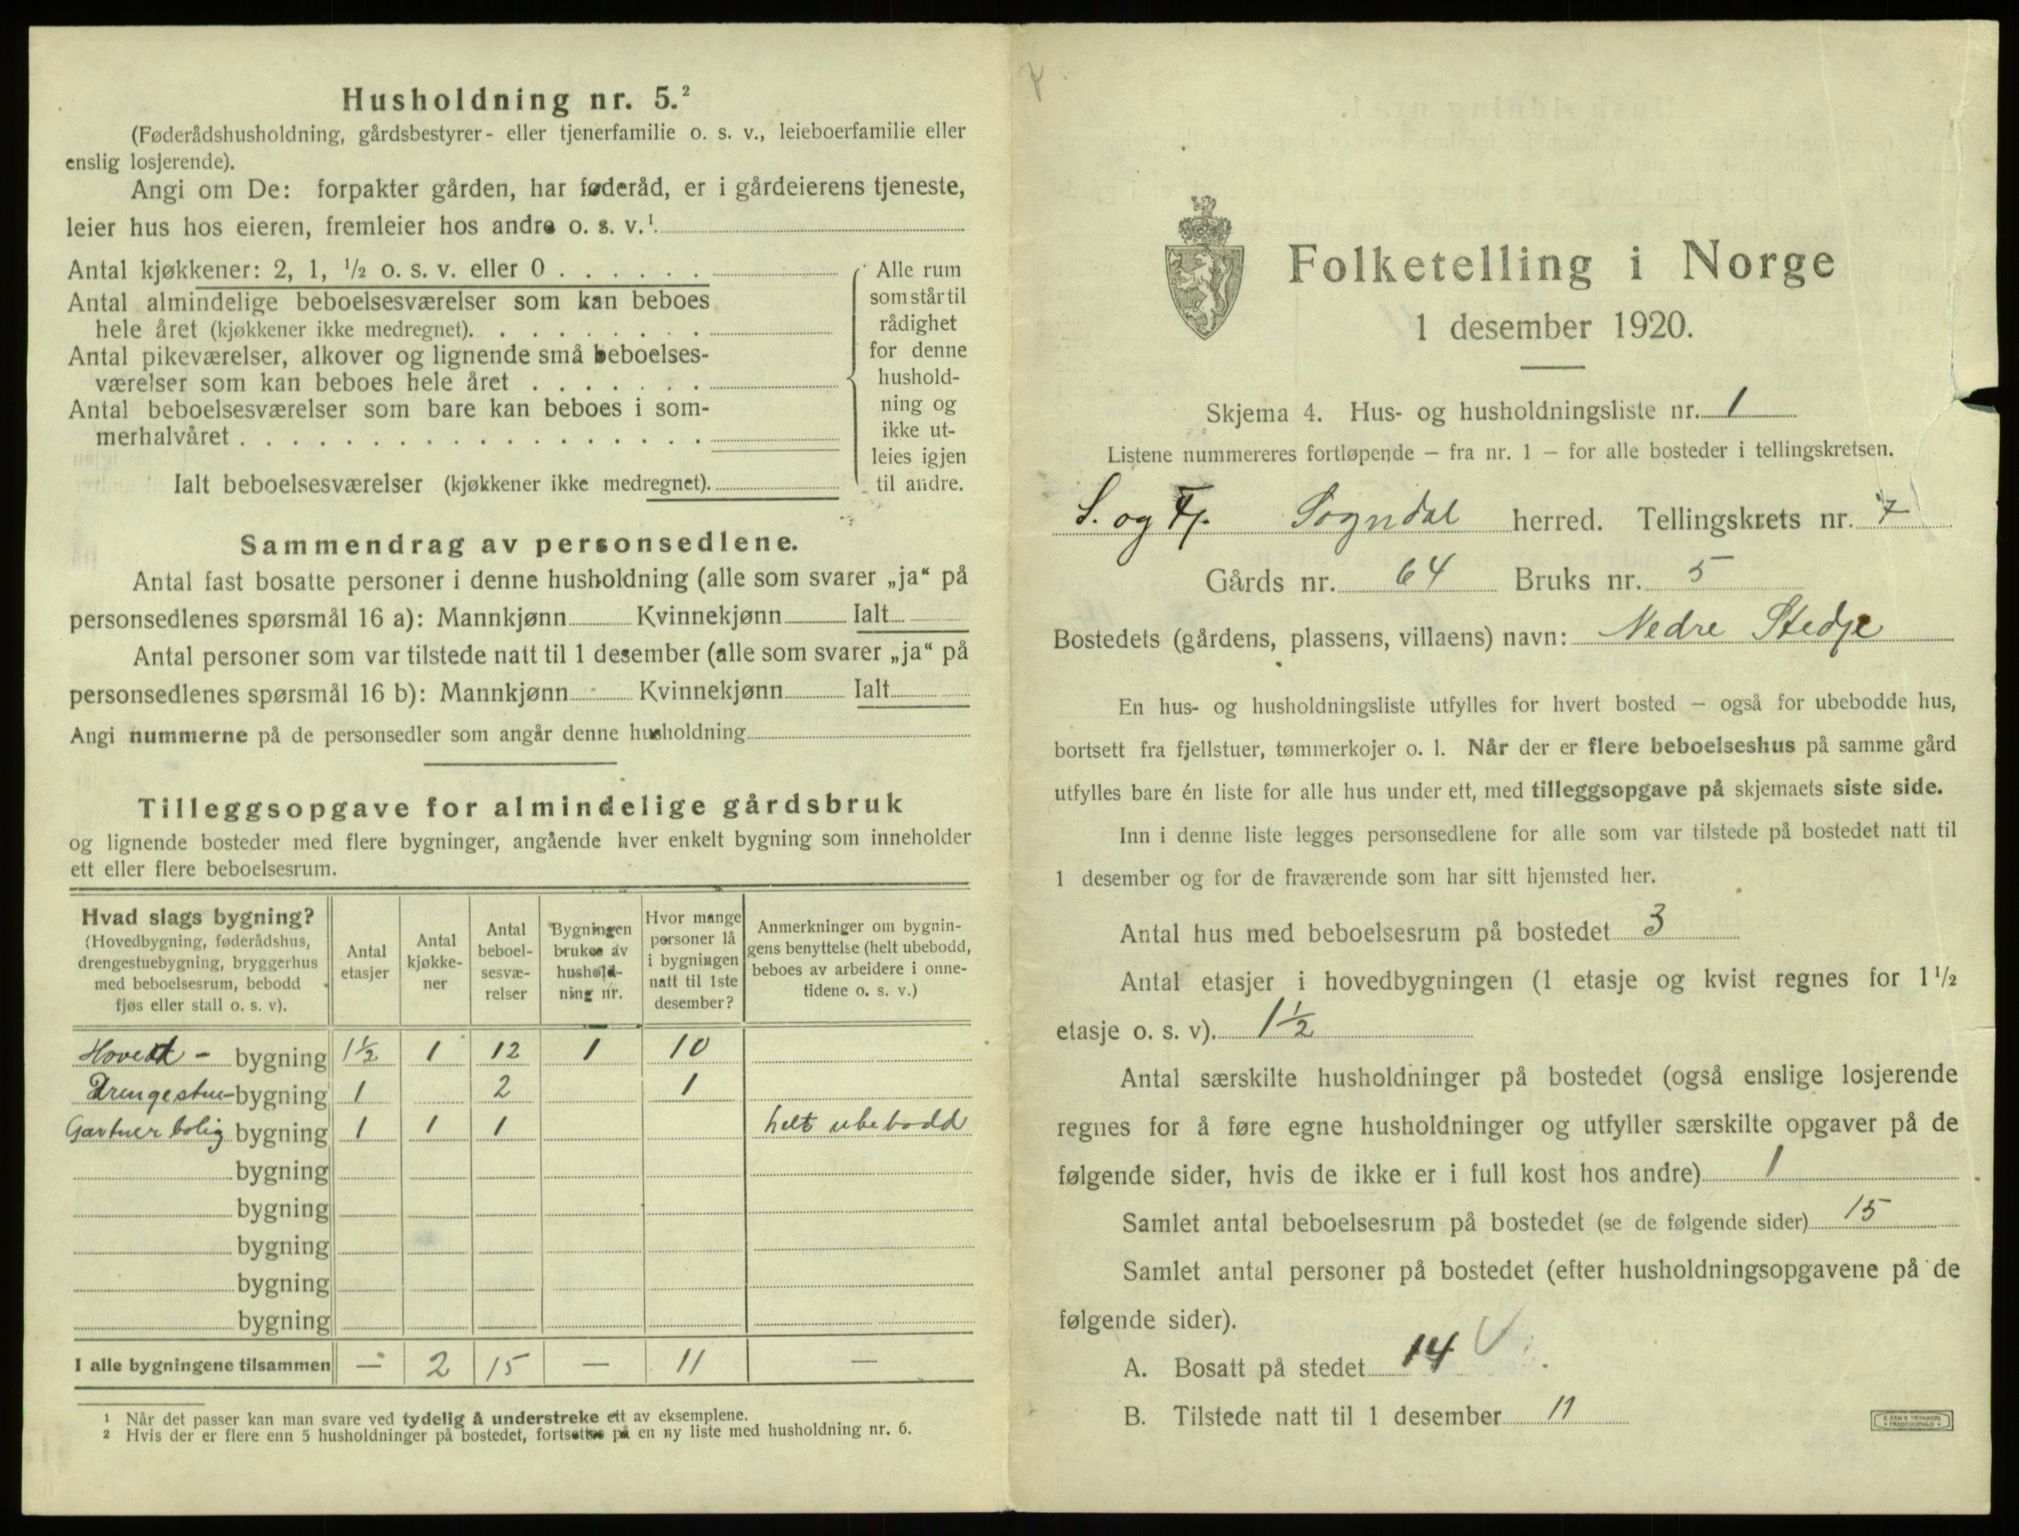 Husholdning nr. 5.²
(Føderådshusholdning, gårdsbestyrer- eller tjenerfamilie o. s. v., leieboerfamilie eller
enslig losjerende).
Angi om De: forpakter gården, har føderåd, er i gårdeierens tjeneste,
leier hus hos eieren, fremleier hos andre o. s. v.¹
Antal kjøkkener: 2, 1, ½ o. s. v. eller 0 . . . . . .
Antal almindelige beboelsesværelser som kan beboes
hele året (kjøkkener ikke medregnet). . . . . . . . .
Antal pikeværelser, alkover og lignende små beboelses-
værelser som kan beboes hele året . . . . . . .
Antal beboelsesværelser som bare kan beboes i som-
merhalvåret . . . . . . . . . . . . . . . . . .
Ialt beboelsesværelser (kjøkkener ikke medregnet).
Alle rum
som står til
rådighet
for denne
hushold-
ning og
ikke ut-
leies igjen
til andre.
Sammendrag av personsedlene.
Antal fast bosatte personer i denne husholdning (alle som svarer „ja“ på
personsedlenes spørsmål 16 a): Mannkjønn Kvinnekjønn Ialt
Antal personer som var tilstede natt til 1 desember (alle som svarer „ja“ på
personsedlenes spørsmål 16 b): Mannkjønn Kvinnekjønn Ialt
Angi nummerne på de personsedler som angår denne husholdning
Tilleggsopgave for almindelige gårdsbruk
og lignende bosteder med flere bygninger, angående hver enkelt bygning som inneholder
ett eller flere beboelsesrum.
Hvad slags bygning?
(Hovedbygning, føderådshus,
drengestuebygning, bryggerhus
med beboelsesrum, bebodd
fjøs eller stall o. s. v).
Antal
etasjer
Antal
kjøkke-
ner
Antal
beboel-
sesvæ-
relser
Bygningen
brukes av
hushold-
ning nr.
Hvor mange
personer lå
i bygningen
natt til 1ste
desember?
Anmerkninger om bygnin-
gens benyttelse (helt ubebodd,
beboes av arbeidere i onne-
tidene o. s. v.)
Hoved - bygning 1½ 1 12 1 10
Drengestue- bygning 1 2 1
Gartnerbolig bygning 1 1 1 helt ubebodd
bygning
bygning
bygning
bygning
bygning
I alle bygningene tilsammen — 2 15 — 11 —
1 Når det passer kan man svare ved tydelig å understreke ett av eksemplene.
2 Hvis der er flere enn 5 husholdninger på bostedet, fortsettes på en ny liste med husholdning nr. 6.
Folketelling i Norge
1 desember 1920.
Skjema 4. Hus- og husholdningsliste nr. 1
Listene nummereres fortløpende – fra nr. 1 – for alle bosteder i tellingskretsen.
S. og Fj. Sogndal herred. Tellingskrets nr. 7
Gårds nr. 64 Bruks nr. 5
Bostedets (gårdens, plassens, villaens) navn: Nedre Stedje
En hus- og husholdningsliste utfylles for hvert bosted – også for ubebodde hus,
bortsett fra fjellstuer, tømmerkojer o. l. Når der er flere beboelseshus på samme gård
utfylles bare én liste for alle hus under ett, med tilleggsopgave på skjemaets siste side.
Inn i denne liste legges personsedlene for alle som var tilstede på bostedet natt til
1 desember og for de fraværende som har sitt hjemsted her.
Antal hus med beboelsesrum på bostedet 3
Antal etasjer i hovedbygningen (1 etasje og kvist regnes for 1½
etasje o. s. v). 1½
Antal særskilte husholdninger på bostedet (også enslige losjerende
regnes for å føre egne husholdninger og utfyller særskilte opgaver på de
følgende sider, hvis de ikke er i full kost hos andre) 1
Samlet antal beboelsesrum på bostedet (se de følgende sider) 15
Samlet antal personer på bostedet (efter husholdningsopgavene på de
følgende sider).
A. Bosatt på stedet 14
B. Tilstede natt til 1 desember 11